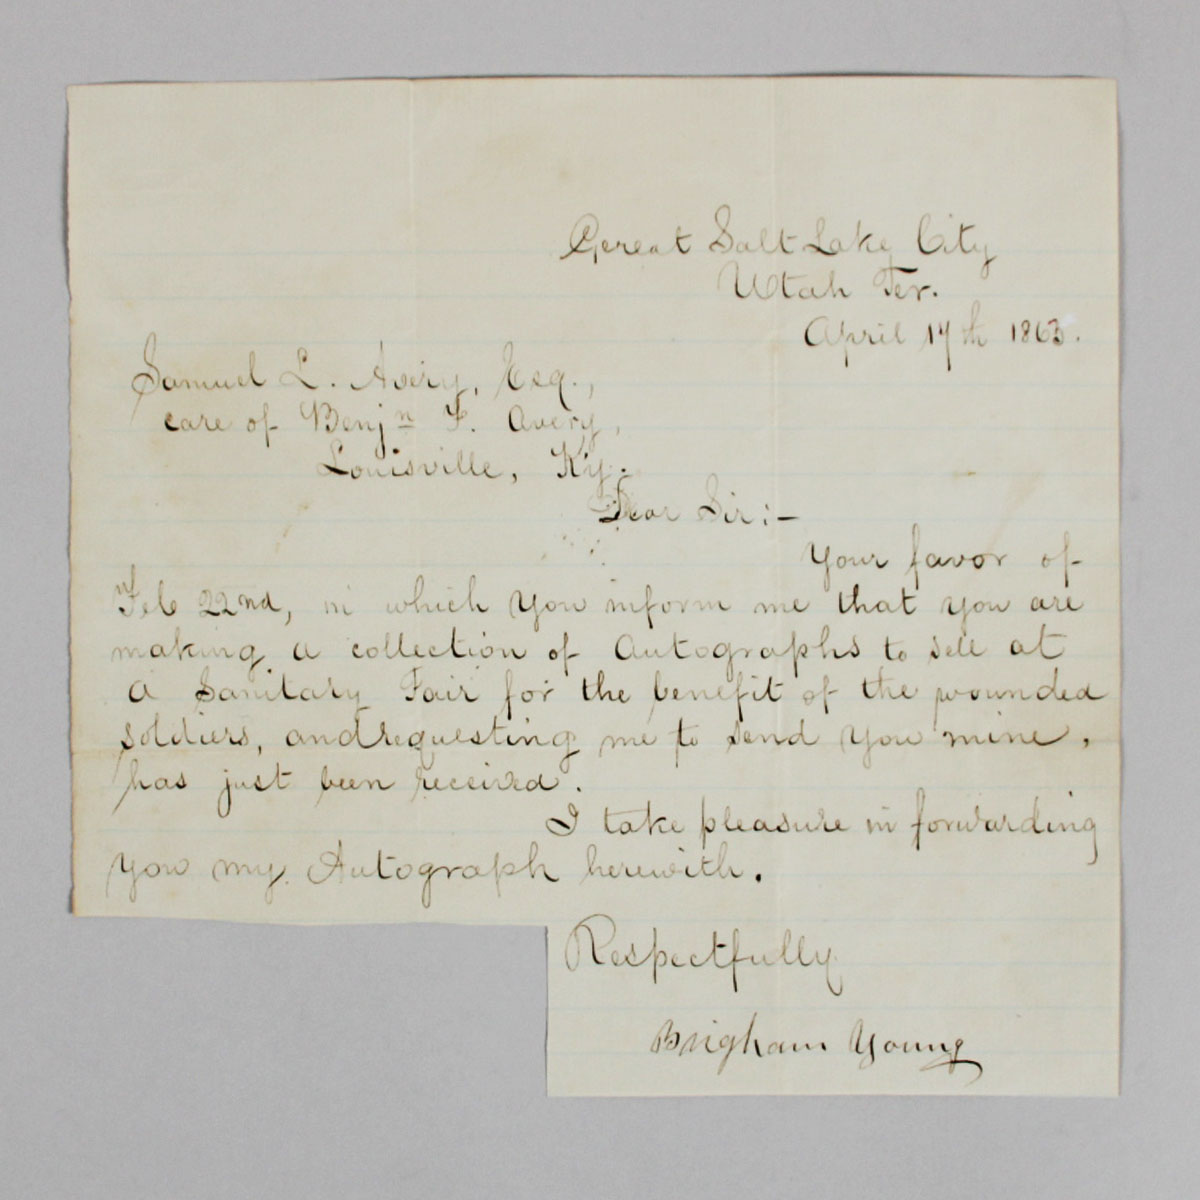 Great Salt Lake City
Utah Ter.
April 17th 1863.
Samuel L. Avery, Esq.,
care of Benjn F. Avery,
Louisville, Ky.
Dear Sir:—
Your favor of
Feb 22nd, in which you inform me that you are
making a collection of Autographs to sell at
a Sanitary Fair for the benefit of the wounded
soldiers, and requesting me to send you mine,
has just been received.
I take pleasure in forwarding
you my Autograph herewith.
Respectfully
Brigham Young